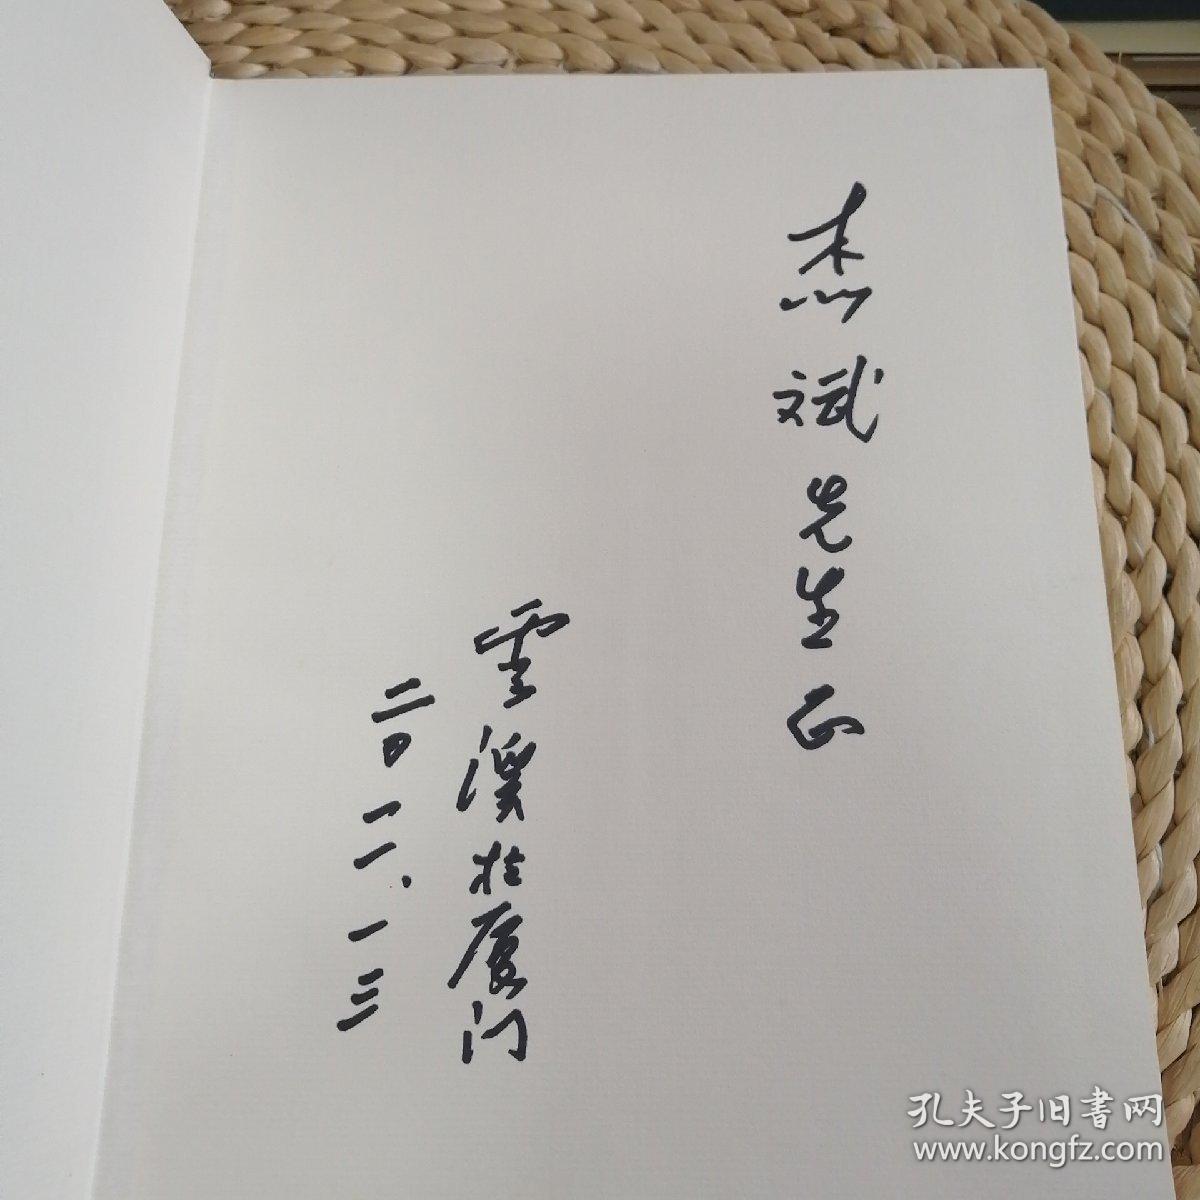 杰斌先生正
雲溪於厦门
二〇一一、一三
孔夫子旧書网
www.kongfz.com